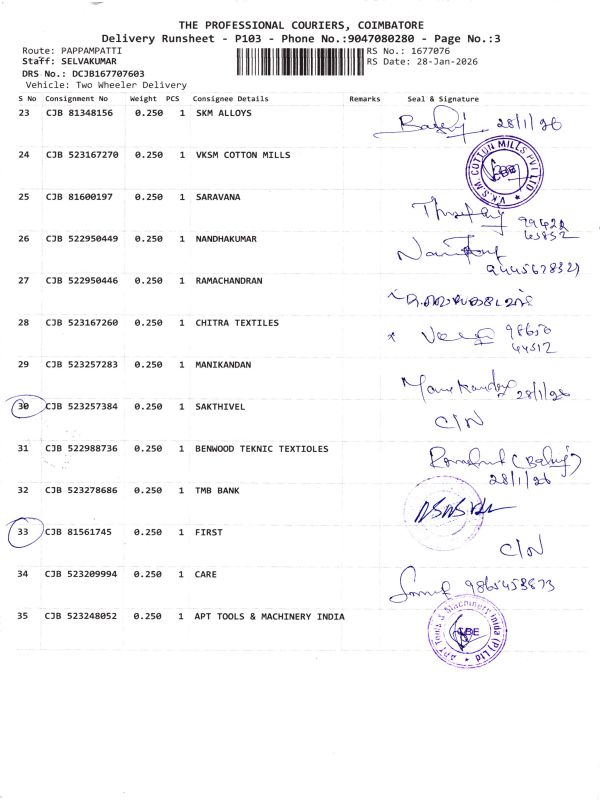 THE PROFESSIONAL COURIERS, COIMBATORE
Delivery Runsheet - P103 - Phone No.:9047080280 - Page No.:3
Route: PAPPAMPATTI RS No.: 1677076
Staff: SELVAKUMAR RS Date: 28-Jan-2026
DRS No.: DCJB167707603
Vehicle: Two Wheeler Delivery
S No Consignment No Weight PCS Consignee Details Remarks Seal & Signature
23 CJB 81348156 0.250 1 SKM ALLOYS 28/1/26
24 CJB 523167270 0.250 1 VKSM COTTON MILLS
V.K.S.M. COTTON MILLS PVT LTD
25 CJB 81600197 0.250 1 SARAVANA
26 CJB 522950449 0.250 1 NANDHAKUMAR
27 CJB 522950446 0.250 1 RAMACHANDRAN
28 CJB 523167260 0.250 1 CHITRA TEXTILES
29 CJB 523257283 0.250 1 MANIKANDAN
Manikandan 28/1/26
30 CJB 523257384 0.250 1 SAKTHIVEL
C/N
31 CJB 522988736 0.250 1 BENWOOD TEKNIC TEXTIOLES
28/1/26
32 CJB 523278686 0.250 1 TMB BANK
33 CJB 81561745 0.250 1 FIRST
C/N
34 CJB 523209994 0.250 1 CARE
9865453873
35 CJB 523248052 0.250 1 APT TOOLS & MACHINERY INDIA
APT Tools & Machinery India (P) Ltd